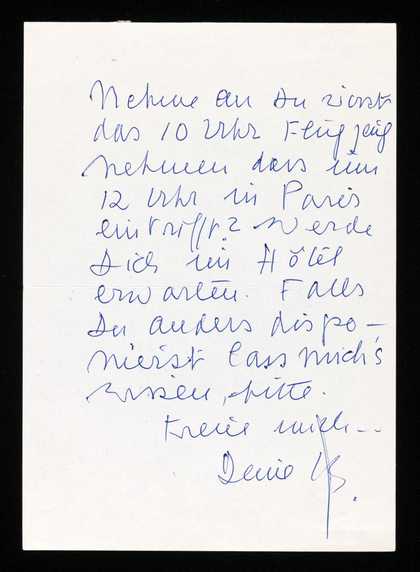 Nehme an Du wirst
das 10 Uhr Flugzeug
nehmen dass um
12 Uhr in Paris
eintrifft? Werde
Dich im Hôtel
erwarten. Falls
Du anders dispo–
nierst lass mich's
wissen, bitte.
Freue mich --
Deine